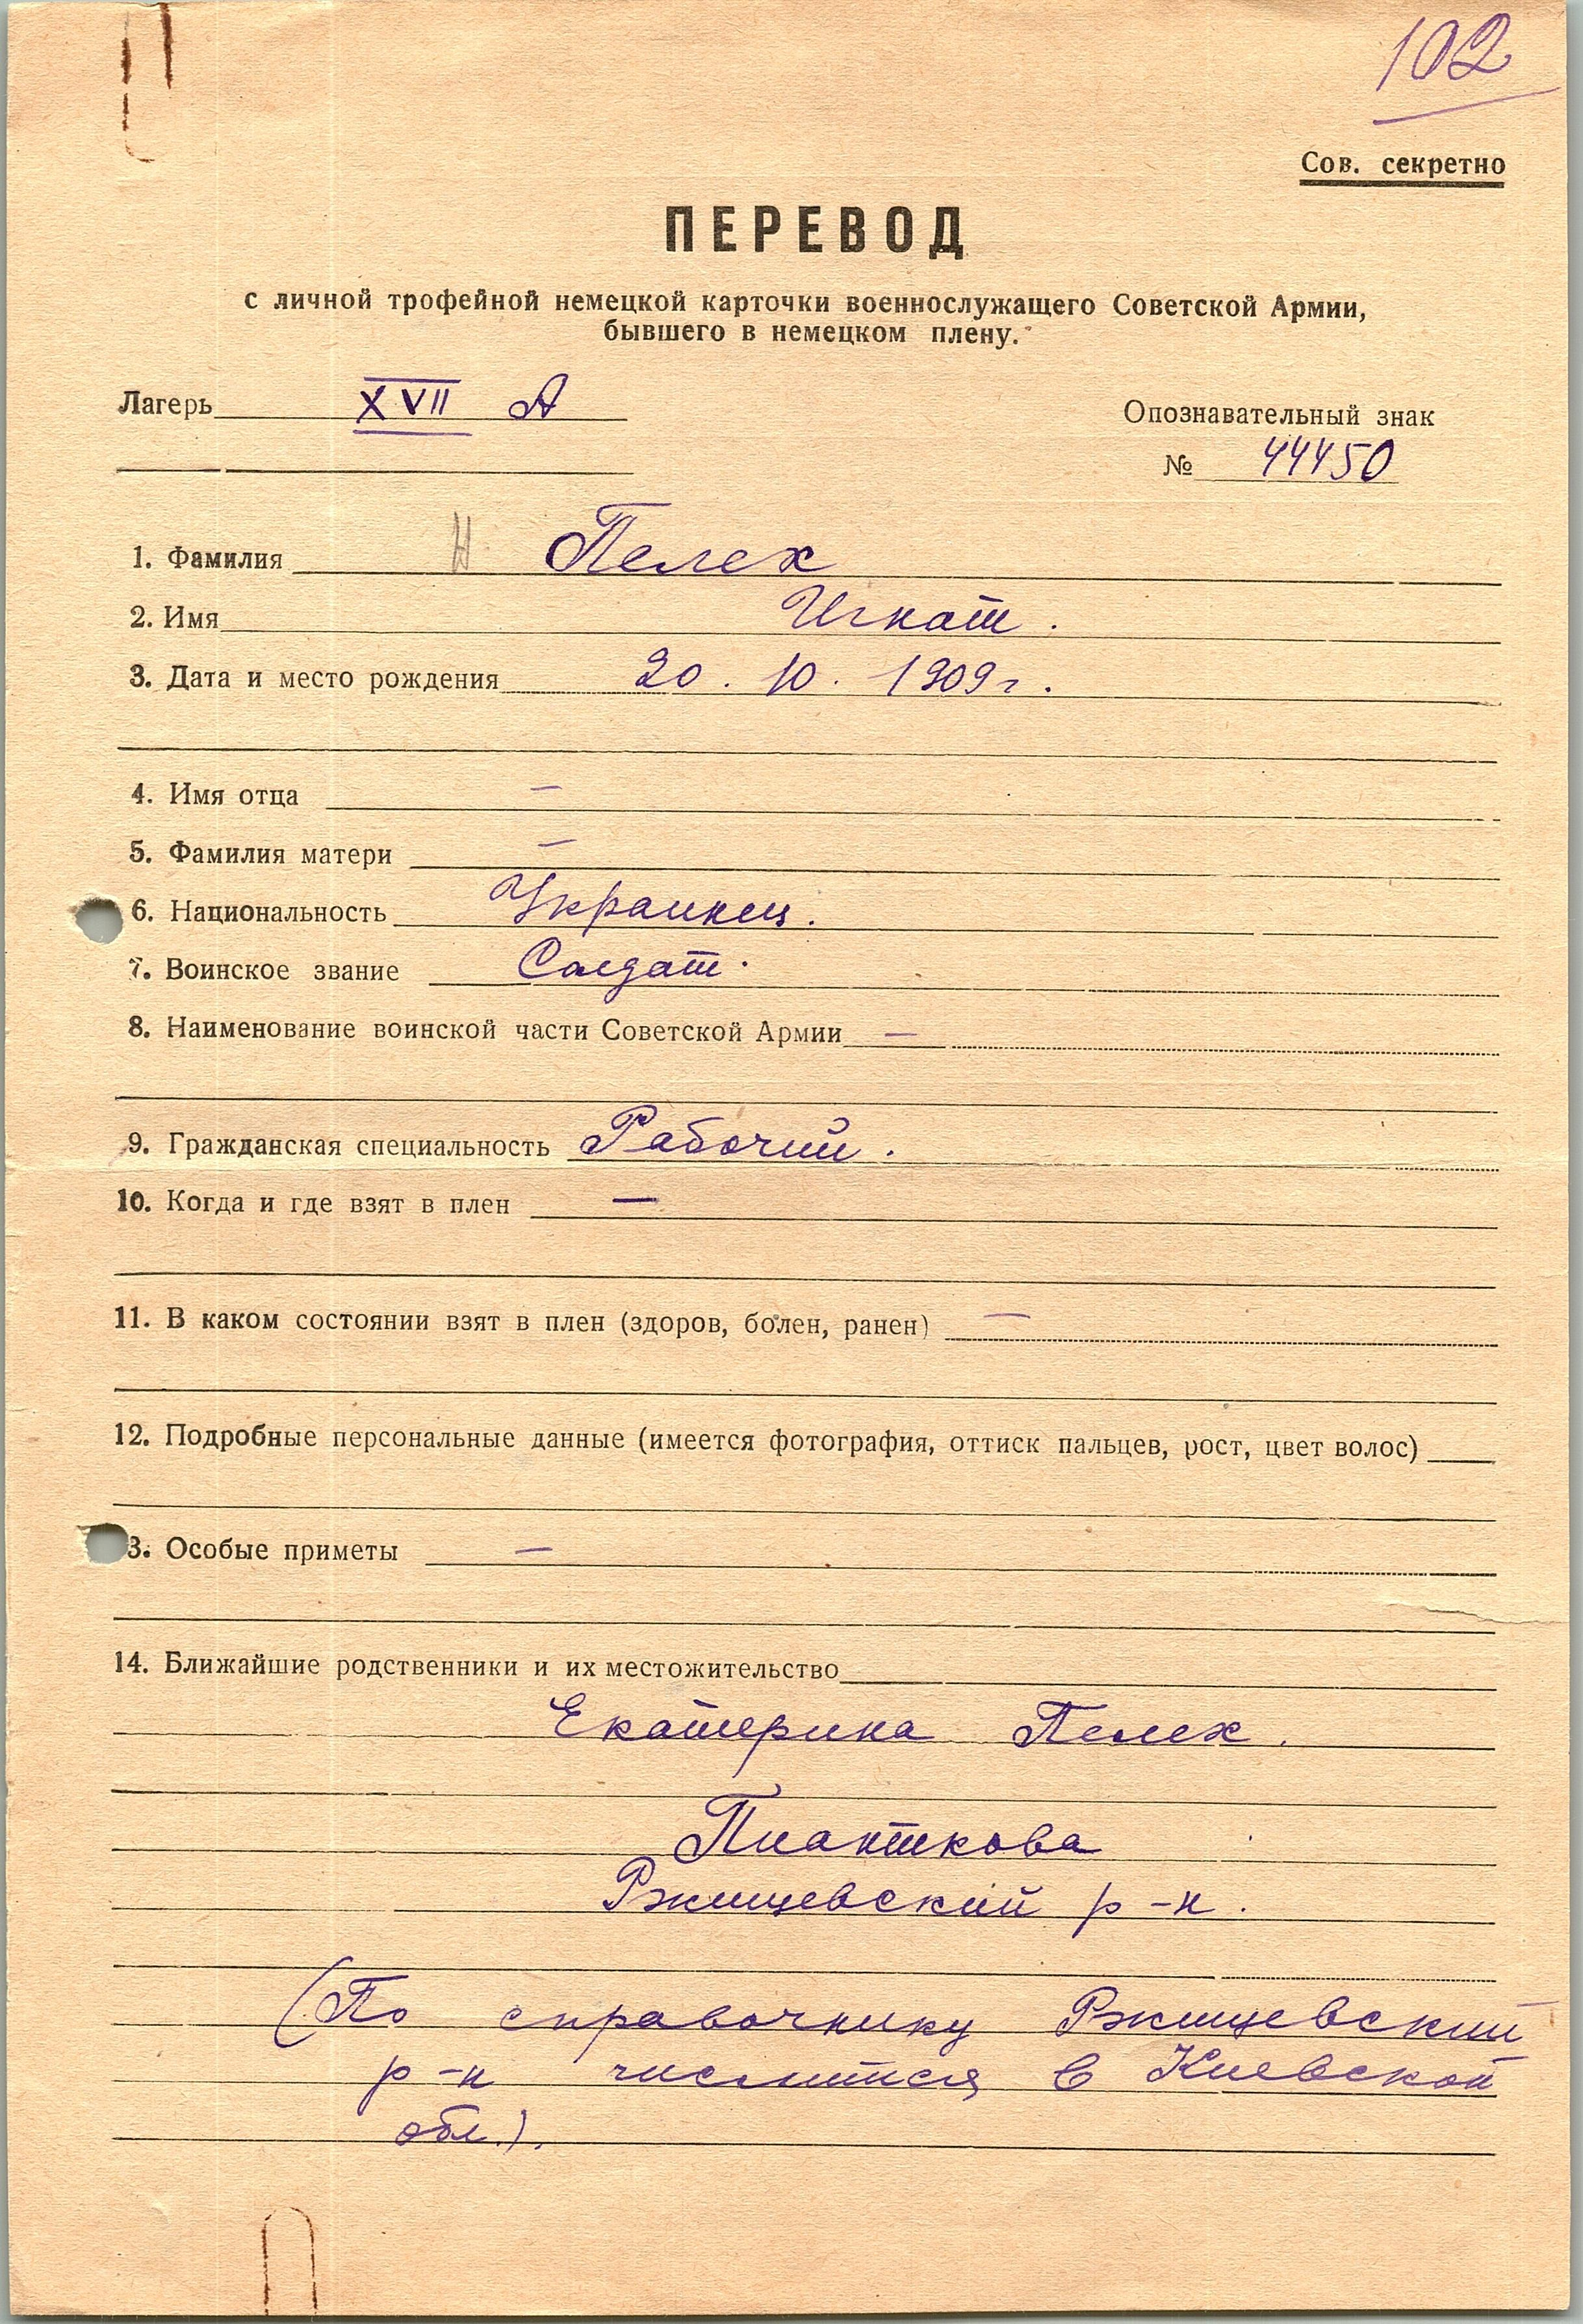 102
Сов. секретно
ПЕРЕВОД
с личной трофейной немецкой карточки военнослужащего Советской Армии,
бывшего в немецком плену.
Лагерь XVII А
Опознавательный знак
№ 44450
1. Фамилия Н Пелех
2. Имя Игнат.
3. Дата и место рождения 20. 10. 1909 г.
4. Имя отца —
5. Фамилия матери —
6. Национальность Украинец.
7. Воинское звание Солдат.
8. Наименование воинской части Советской Армии —
9. Гражданская специальность Рабочий.
10. Когда и где взят в плен —
11. В каком состоянии взят в плен (здоров, болен, ранен) —
12. Подробные персональные данные (имеется фотография, оттиск пальцев, рост, цвет волос)
3. Особые приметы —
14. Ближайшие родственники и их местожительство
Екатерина Пелех.
Пианткова
Ржищевский р-н.
(По справочнику Ржищевский
р-н числится в Киевской
обл.).